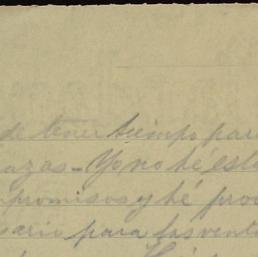 de tener tiempo para
azas - Yo no hé esta
mpromisos y hé proc
sario para las venta